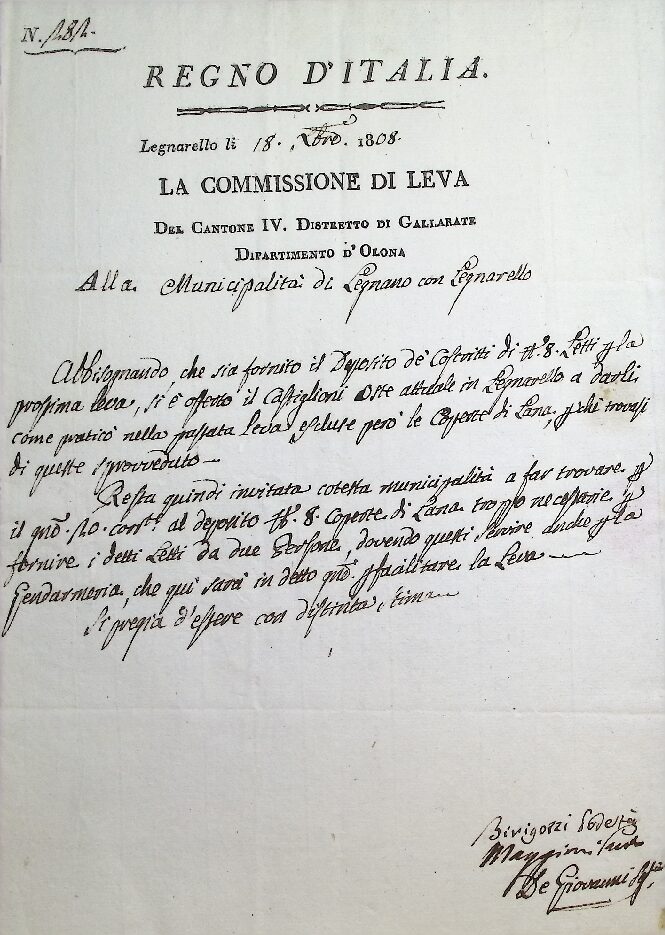 N. 282.
REGNO D'ITALIA.
Legnarello li 18. Xbre. 1808.
LA COMMISSIONE DI LEVA
DEL CANTONE IV. DISTRETTO DI GALLARATE
DIPARTIMENTO D'OLONA
Alla Municipalità di Legnano con Legnarello
Abbisognando, che sia fornito il Deposito de' Coscritti di N.° 8. Letti p la
prossima leva, si è offerto il Castiglioni Oste attuale in Legnarello a darli
come praticò nella passata leva, escluse però le Coperte di Lana, p chè trovasi
di queste sprovveduto
Resta quindi invitata cotesta municipalità a far trovare p
il gno. 20. corrte. al deposito N.° 8. Coperte di Lana troppo necessarie p
fornire i detti Letti da due Persone, dovendo questi servire anche p la
Gendarmeria, che qui sarà in detto gno. p facilitare la Leva
Si pregia d'essere con distinta stima
Podestà
De Giovanni